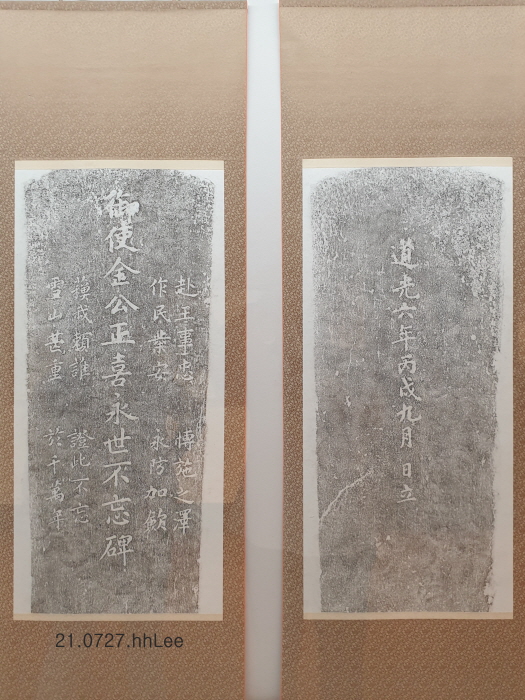 赴王事忠 博施之澤
作民業安 永防加斂
御使金公正喜永世不忘碑
我顧誰 證此不忘
雪山甚重 於千萬年
道光六年丙戌九月 日立
21.0727.hhLee